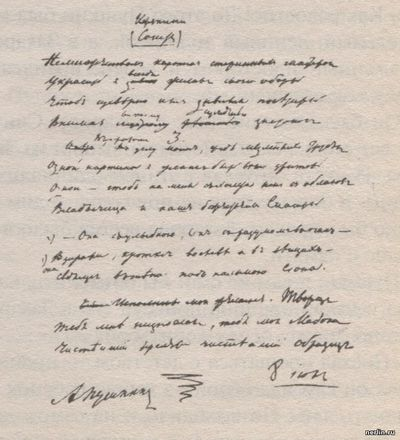 Картина
[Сонет]
Не множеством картин старинных мастеров
Украсить я всегда желал свою обитель
Чтоб суеверно им дивился посетитель
Внимая важному сужденью знатоков
В простом углу моем, средь медленных трудов
Одной картины я желал быть вечно зритель
Одной — чтоб на меня как с облаков
Владычица и наш божественный Спаситель
— Она с улыбкою, Он с разумом в очах —
Взирали, кроткие во славе и в лучах
под пальмою Сиона.
Исполнились мои желания. Творец
Тебя мне ниспослал, тебя моя Мадона
Чистейшей прелести чистейший образец
8 июля
А Пушкин
nerlin.ru